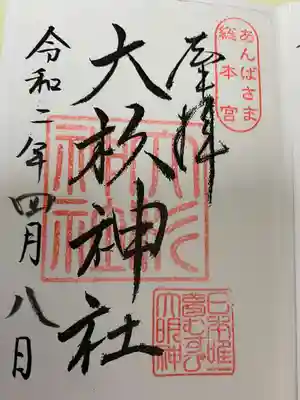 あんばさま
総本宮
奉拝
大杉神社
令和二年四月八日
大杉
神社
日本唯一
夢むすび
大明神